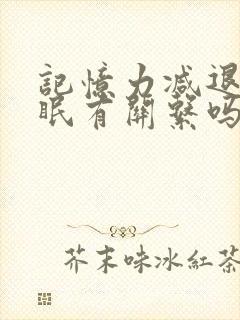 記憶力減退
眠有關繫嗎
芥末味冰紅茶